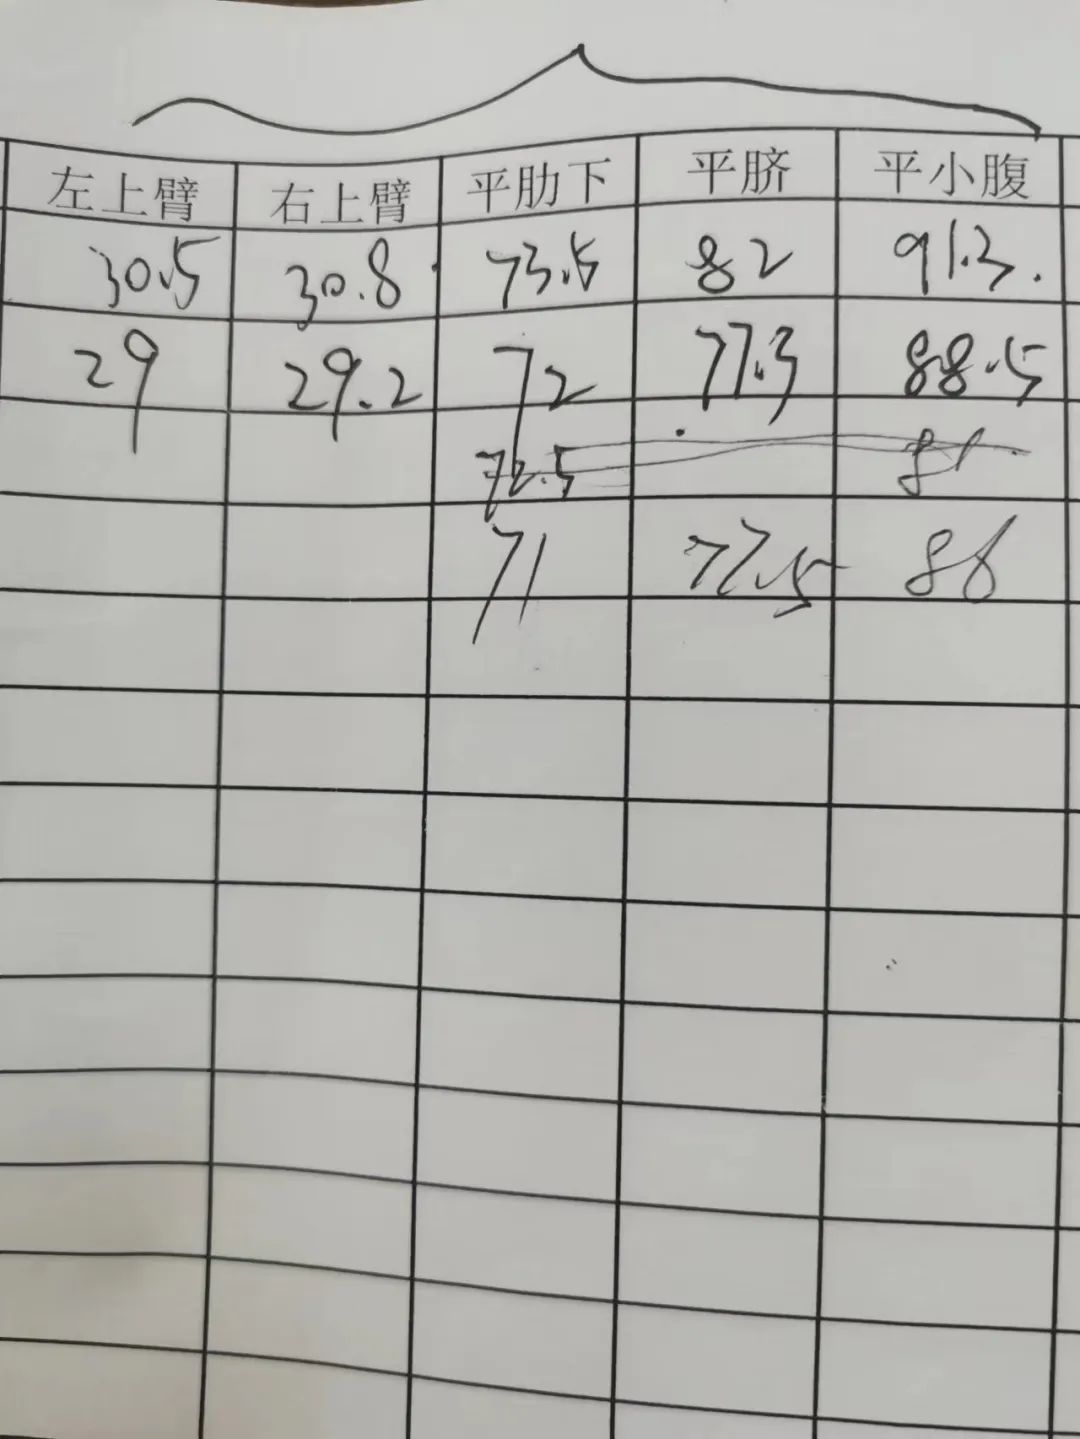 左上臂 右上臂 平肋下 平脐 平小腹
30.5 30.8 73.5 82 91.3.
29 29.2 72 77.3 88.5
72.5
71 77.5 88